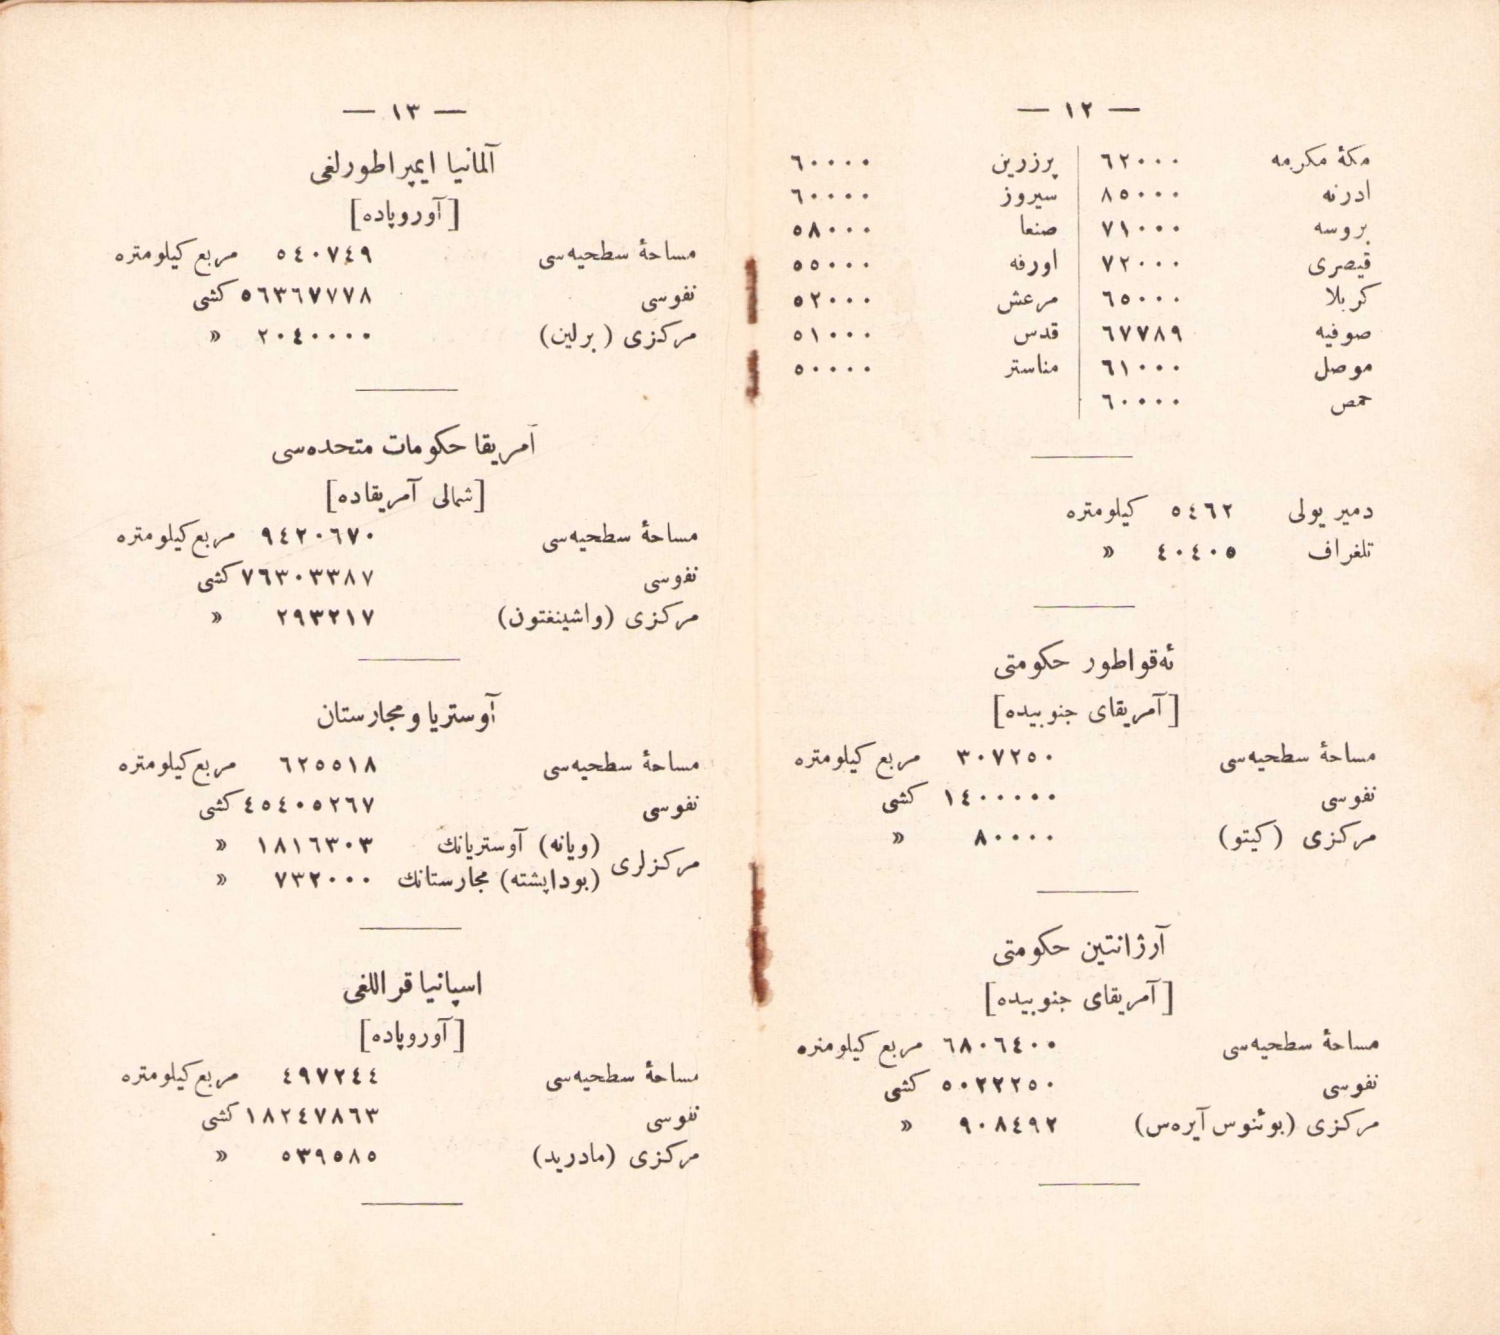 — ١٢ —
مكهٔ مكرمه ٦٢٠٠٠ پرزرین ٦٠٠٠٠
ادرنه ٨٥٠٠٠ سیروز ٦٠٠٠٠
بروسه ٧١٠٠٠ صنعا ٥٨٠٠٠
قیصری ٧٢٠٠٠ اورفه ٥٥٠٠٠
كربلا ٦٥٠٠٠ مرعش ٥٢٠٠٠
صوفیه ٦٧٧٨٩ قدس ٥١٠٠٠
موصل ٦١٠٠٠ مناستر ٥٠٠٠٠
حمص ٦٠٠٠٠
دمیر یولی ٥٤٦٢ كیلومتره
تلغراف ٤٠٤٠٥ »
ئه‌قواطور حكومتی
[آمریقای جنوبیده]
مساحهٔ سطحیه‌سی ٣٠٧٢٥٠ مربع كیلومتره
نفوسی ١٤٠٠٠٠٠ كشی
مركزی (كیتو) ٨٠٠٠٠ »
آرژانتین حكومتی
[آمریقای جنوبیده]
مساحهٔ سطحیه‌سی ٦٨٠٦٤٠٠ مربع كیلومتره
نفوسی ٥٠٢٢٢٥٠ كشی
مركزی (بوئنوس آیره‌س) ٩٠٨٤٩٢ »
— ١٣ —
آلمانیا ایمپراطورلغی
[آوروپاده]
مساحهٔ سطحیه‌سی ٥٤٠٧٤٩ مربع كیلومتره
نفوسی ٥٦٣٦٧٧٧٨ كشی
مركزی (برلین) ٢٠٤٠٠٠٠ »
آمریقا حكومات متحده‌سی
[شمالی آمریقاده]
مساحهٔ سطحیه‌سی ٩٤٢٠٦٧٠ مربع كیلومتره
نفوسی ٧٦٣٠٣٣٨٧ كشی
مركزی (واشینغتون) ٢٩٣٢١٧ »
آوستریا و مجارستان
مساحهٔ سطحیه‌سی ٦٢٥٥١٨ مربع كیلومتره
نفوسی ٤٥٤٠٥٢٦٧ كشی
مركزلری (ویانه) آوستریانك ١٨١٦٣٠٣ »
(بوداپشته) مجارستانك ٧٣٢٠٠٠ »
اسپانیا قراللغی
[آوروپاده]
مساحهٔ سطحیه‌سی ٤٩٧٢٤٤ مربع كیلومتره
نفوسی ١٨٢٤٧٨٦٣ كشی
مركزی (مادرید) ٥٣٩٥٨٥ »